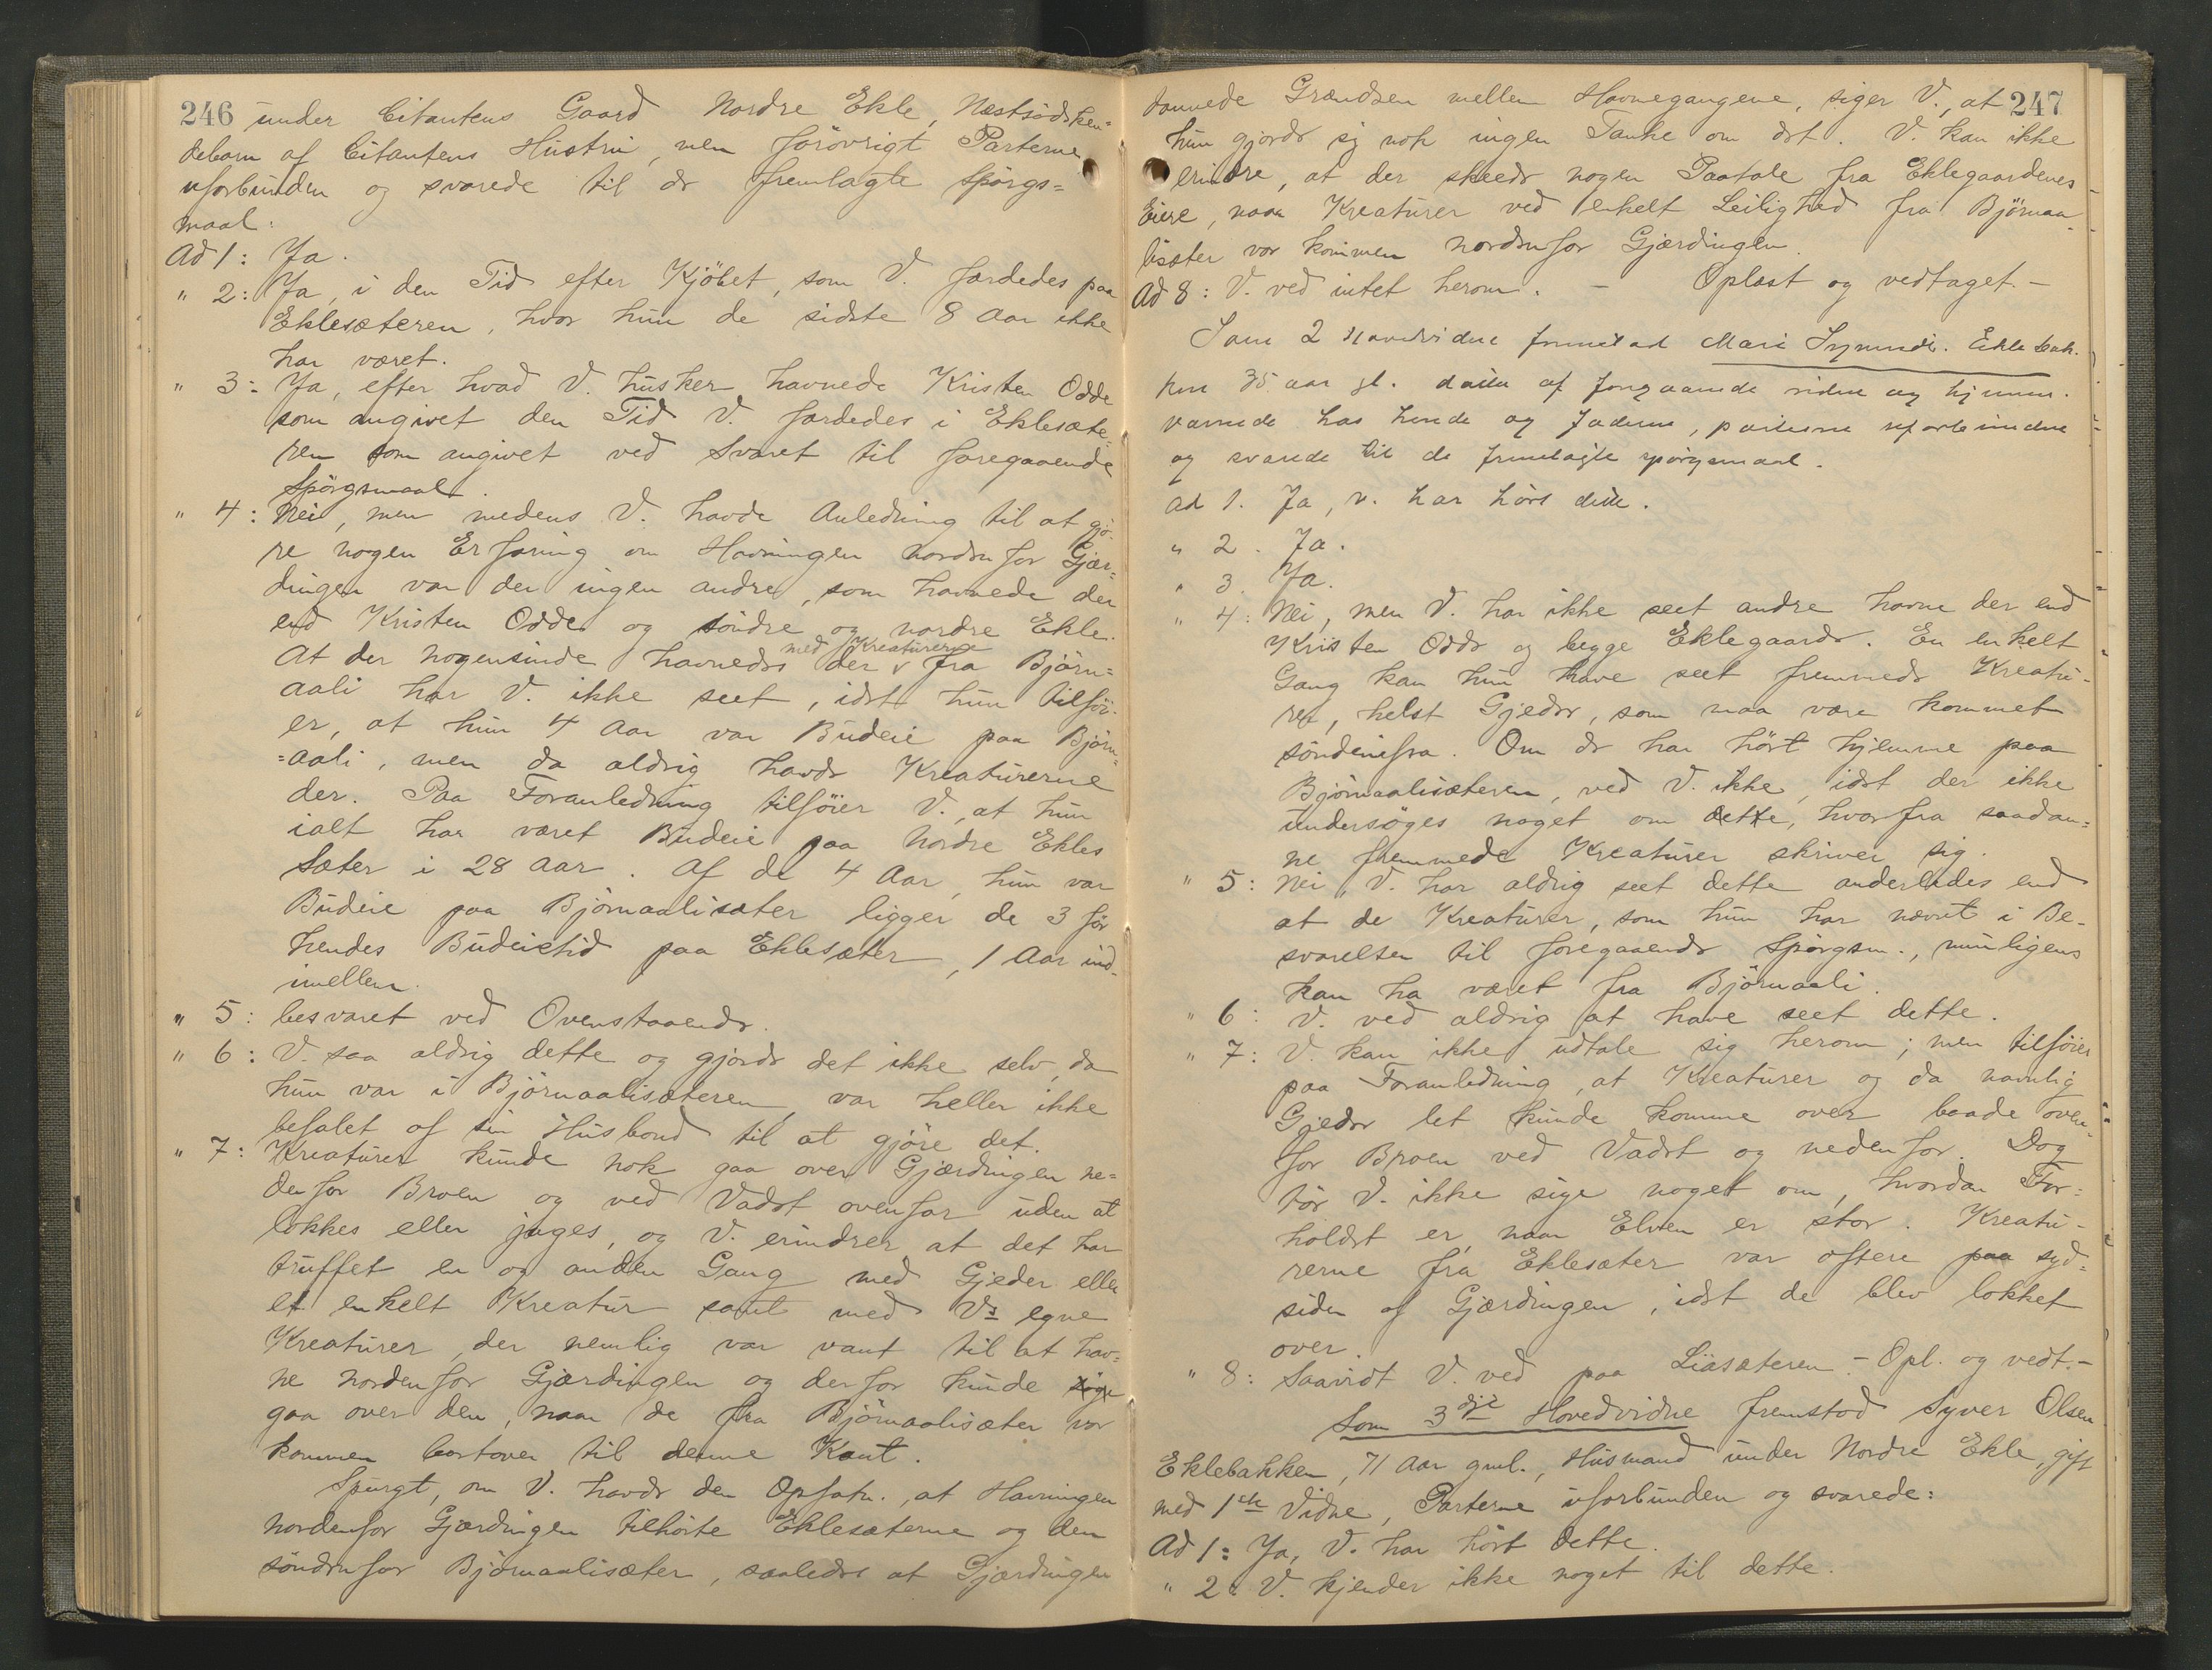 246 under Citantens Gaard Nordre Ekle, Næstsødsken=
debarn af Citantens Hustru, men forøvrigt Parterne
uforbunden og svarede til de fremlagte Spørgs=
maal:
Ad 1: Ja.
" 2: Ja, i den Tid efter Kjøbet, som V. færdedes paa
Eklesæteren, hvor hun de sidste 8 Aar ikke
har været.
" 3: Ja, efter hvad V. husker havnede Kristen Odde
som angivet den Tid V. færdedes i Eklesæte=
ren som angivet ved Svaret til foregaaende
Spørgsmaal.
" 4: Nei, men medens V. havde Anledning til at gjø-
re nogen Erfaring om Havningen nordenfor Gjær=
dingen var der ingen andre, som havnede der
end Kristen Odde og søndre og nordre Ekle.
At der nogensinde havnedes der med Kreaturerne fra Bjørn=
aali har V. ikke seet, idet hun tilføi-
er, at hun 4 Aar var Budeie paa Bjørn=
=aali, men da aldrig havde Kreaturerne
der. Paa Foranledning tilføier V., at hun
ialt har været Budeie paa Nordre Ekles
Sæter i 28 Aar. Af de 4 Aar, hun var
Budeie paa Bjørnaalisæter ligger de 3 før
hendes Budeietid paa Eklesæter, 1 Aar ind-
imellem.
" 5: besvaret ved Ovenstaaende.
" 6: V. saa aldrig dette og gjorde det ikke selv, da
hun var i Bjørnaalisæteren, var heller ikke
befalet af sin Husbond til at gjøre det.
" 7: Kreaturer kunde nok gaa over Gjærdingen ne=
denfor Broen og ved Vadet ovenfor uden at
lokkes eller jages, og V. erindrer at det har
truffet en og anden Gang med Gjeder eller
et enkelt Kreatur samt med V's egne
Kreaturer, der nemlig var vant til at hav=
ne nordenfor Gjærdingen og derfor kunde søge
gaa over den, naar de fra Bjørnaalisæter var
kommen bortover til denne Kant.
Spurgt, om V. havde den Opfatn., at Havningen
nordenfor Gjærdingen tilhørte Eklesæterne og den
søndenfor Bjørnaalisæter, saaledes at Gjærdingen
dannede Grændsen mellem Havnegangene, siger V., at 247
hun gjorde sig nok ingen Tanke om det. V. kan ikke
erindre, at der skeede nogen Paatale fra Eklegaardenes
Eiere, naar Kreaturer ved enkelt Leilighed fra Bjørnaa
lisæter var kommen nordenfor Gjærdingen.
Ad 8: V. ved intet herom. - Oplæst og vedtaget.-
Som 2 Hovedvidne fremstod Mari Syversdt. Eklebak-
ken 35 aar gl. datter af foregaaende vidne og hjemme-
værende hos hende og Faderen, parterne uforbunden
og svarede til de fremlagte spørgsmaal.
ad 1. Ja, v. har hørt dette.
" 2. Ja.
" 3. Ja.
" 4: Nei, men V. har ikke seet andre havne der end
Kristen Odde og begge Eklegaarde. En enkelt
Gang kan hun have seet fremmede Kreatu-
rer, helst Gjeder, som maa være kommet
søndenifra. Om de har hørt hjemme paa
Bjørnaalisæteren, ved V. ikke, idet der ikke
undersøges noget om dette, hvorfra saadan=
ne fremmede Kreaturer skriver sig.
" 5: Nei, V. har aldrig seet dette anderledes end
at de Kreaturer, som hun har nævnt i Be-
svarelsen til foregaaende Spørgsm., muligens
kan ha været fra Bjørnaali.
" 6: V. ved aldrig at have seet dette.
" 7: V. kan ikke udtale sig herom; men tilføier
paa Foranledning, at Kreaturer og da navnlig
Gjeder let kunde komme over baade oven-
for Broen ved Vadet og nedenfor. Dog
tør V. ikke sige noget om, hvordan For=
holdet er, naar Elven er stor. Kreatu-
rerne fra Eklesæter var oftere paa syd=
siden af Gjærdingen, idet de blev lokket
over.
" 8: Saavidt V. ved paa Liasæteren - Opl. og vedt.-
Som 3die Hovedvidne fremstod Syver Olsen
Eklebakken, 71 Aar gml., Husmand under Nordre Ekle, gift
med 1ste Vidne, Parterne uforbunden og svarede:
Ad 1: Ja, V. har hørt dette.
" 2: V. kjender ikke noget til dette.